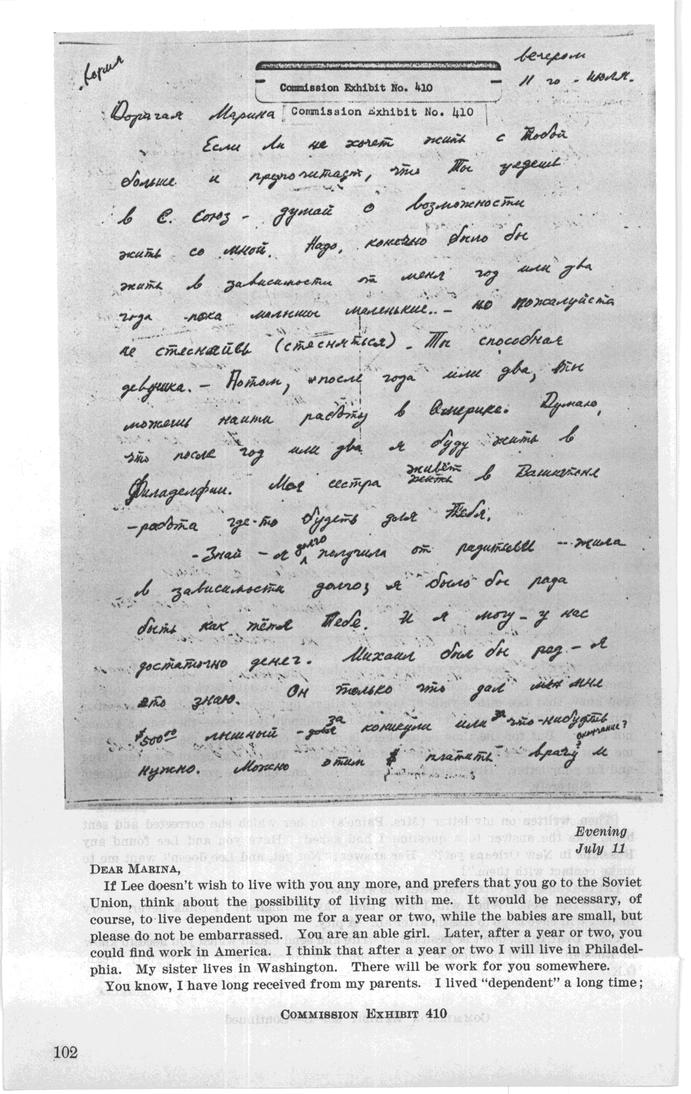 Копия
вечером
11 го - июля.
Commission Exhibit No. 410
Commission Exhibit No. 410
Дорагая Марина
Если Ли не хочет жить с Тобой
больше и предпочитает, что Ты уедешь
в С. Союз - думай о возможности
жить со мной. Надо, конечно было бы
жить в зависимости от меня год или два
года пока малышы маленькие.. - но пожалуйста
не стесняйсь (стесняться). Ты способная
девушка. - Потом, после года или два, ты
можешь найти работу в Америке. Думаю,
что после год или два я буду жить в
Филаделфии. Моя сестра живёт в Вашингтоне
- работа где-то будеть для Тебя.
- Знай - я долго получила от радителей - жила
в зависимости долго; я было бы рада
быть как тётя Тебе. И я могу - у нас
достаточно денег. Михаил был бы рад - я
это знаю. Он только что дал мне
$500.00 лышный - за коникули или что-нибудь
окончание?
нужно. Можно этим $ платить врачу и
Evening
July 11
DEAR MARINA,
If Lee doesn't wish to live with you any more, and prefers that you go to the Soviet
Union, think about the possibility of living with me. It would be necessary, of
course, to live dependent upon me for a year or two, while the babies are small, but
please do not be embarrassed. You are an able girl. Later, after a year or two, you
could find work in America. I think that after a year or two I will live in Philadel-
phia. My sister lives in Washington. There will be work for you somewhere.
You know, I have long received from my parents. I lived "dependent" a long time;
COMMISSION EXHIBIT 410
102